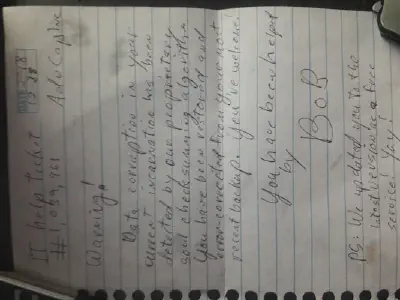 IT help ticket
#1,059,961
Warning!
Data corruption in your
current incarnation has been
detected by our proprietary
soul checksumming algorithm.
You have been restored and
error-corrected from your most
recent backup. You're welcome!
You have been helped
by
BoB
PS: We updated you to the
latest version as a free
service! Yay!